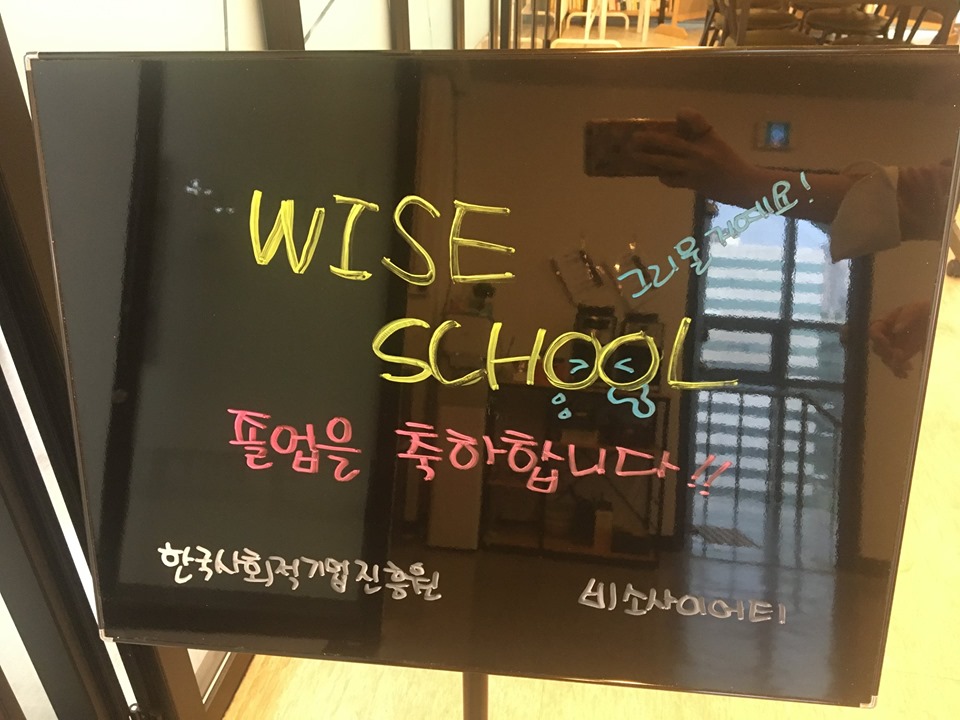 WISE
그리울 거예요!
SCHOOL
졸업을 축하합니다!!
한국사회적기업진흥원
비소사이어티